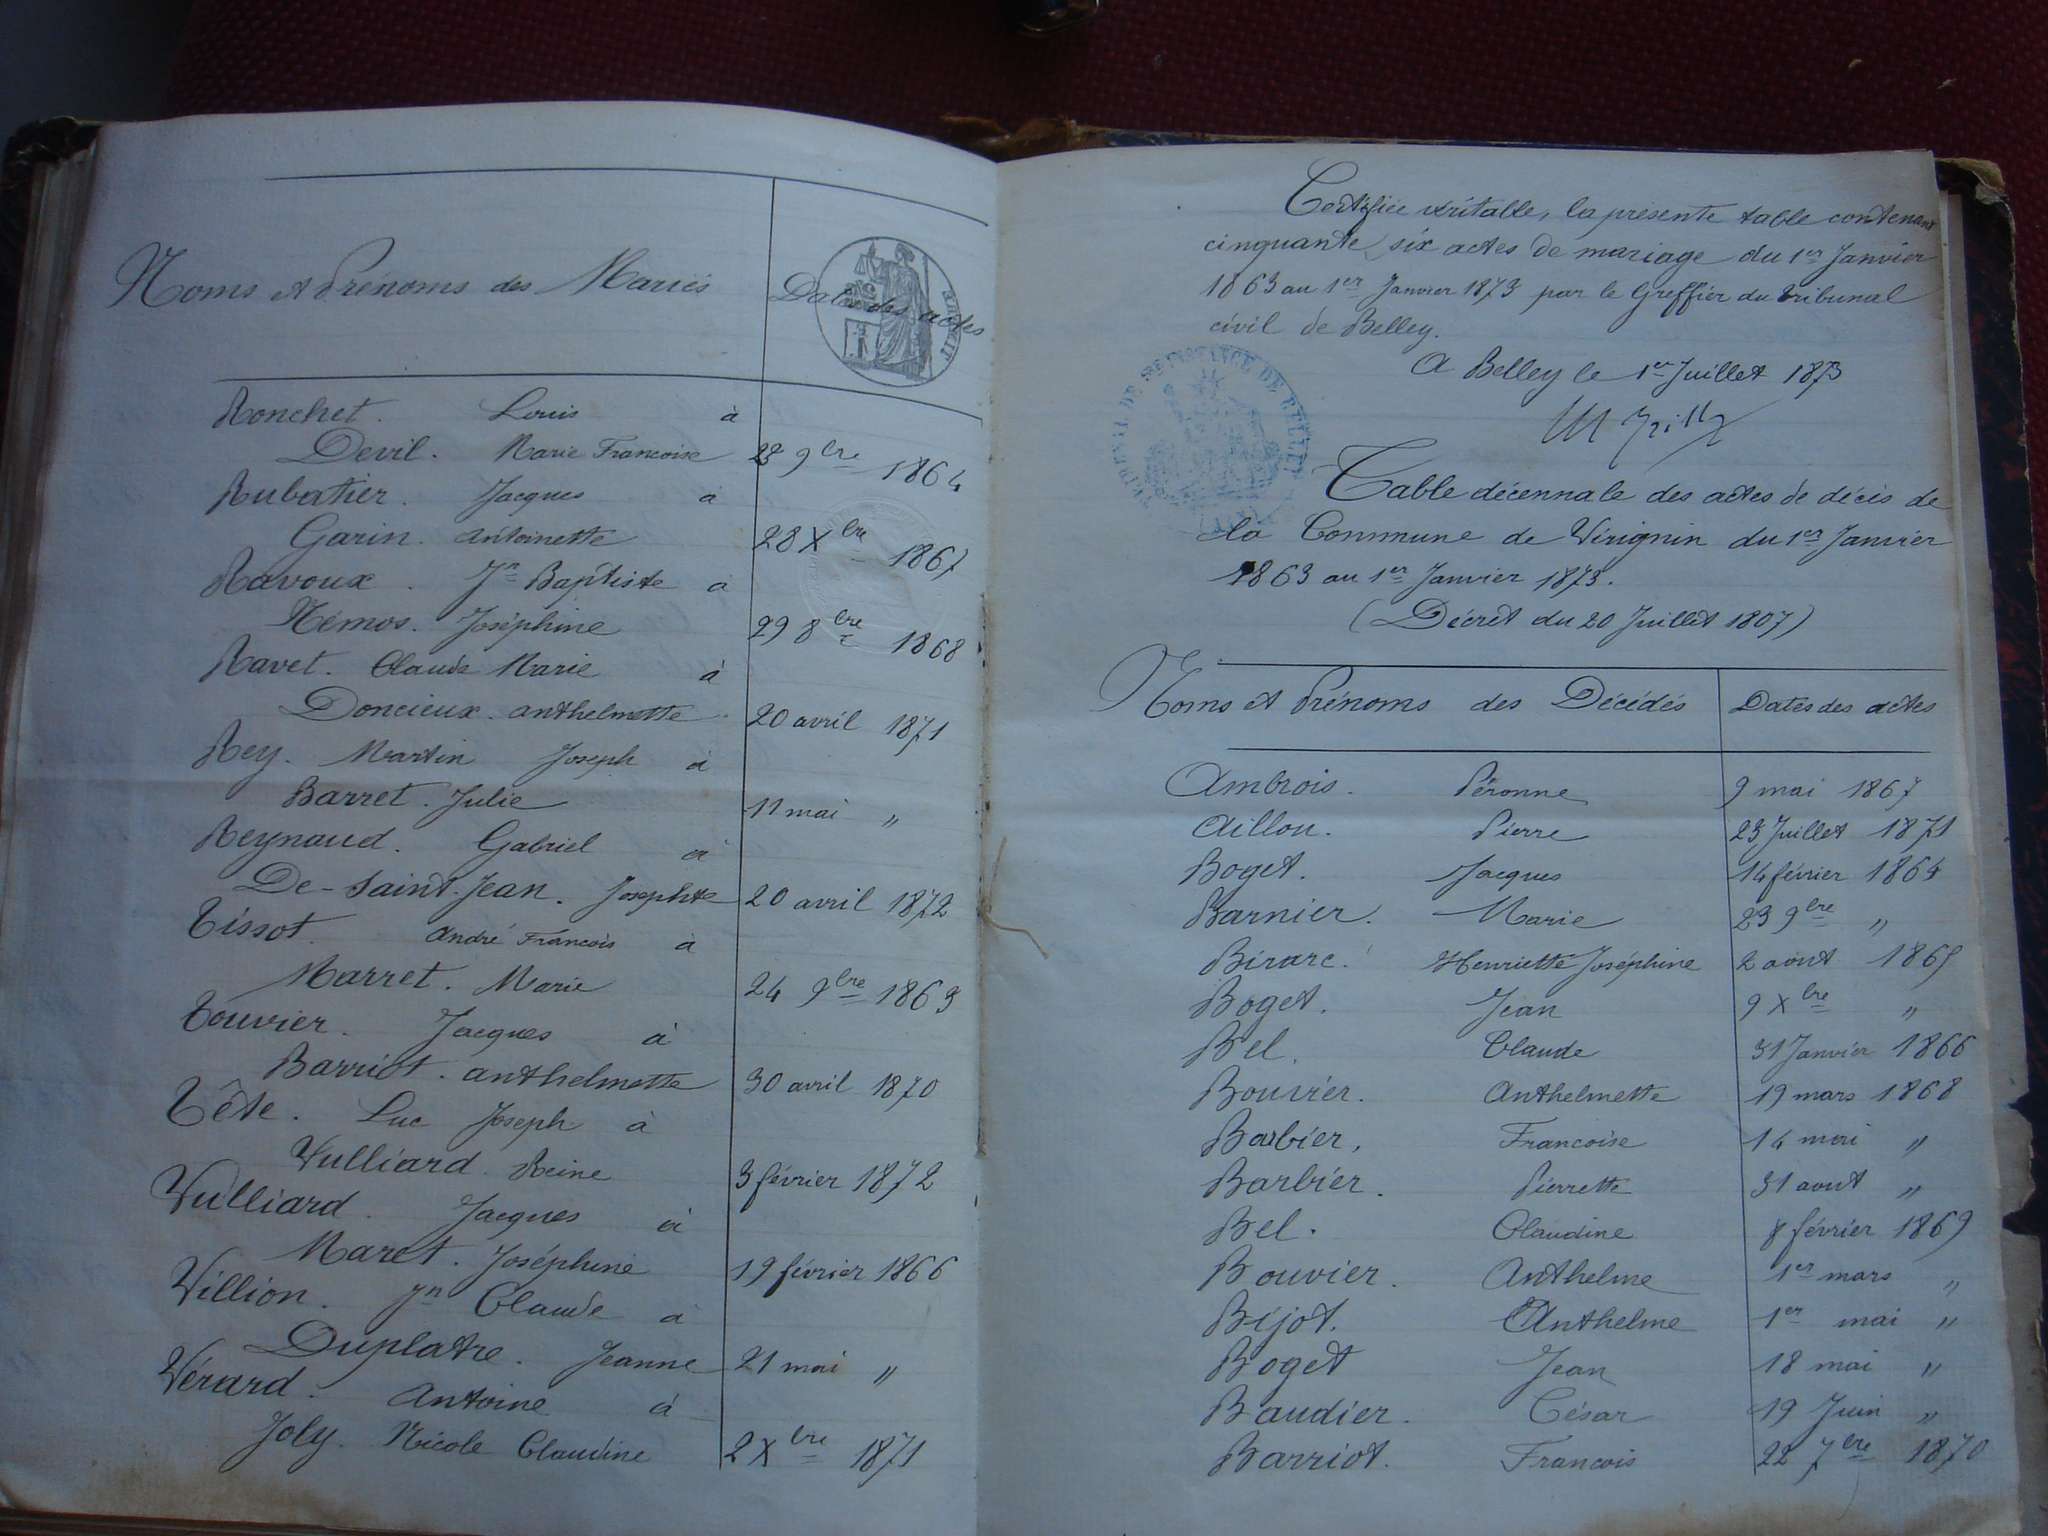 Noms et Prénoms des Mariés
Dates des actes
Ronchet. Louis à
Devil. Marie Francoise 28 9bre 1864
Rubatier. Jacques à
Garin. Antoinette 28 Xbre 1867
Ravoux. Jn Baptiste à
Némos. Joséphine 29 8bre 1868
Ravet. Claude Marie à
Doncieux. anthelmette 20 avril 1871
Rey. Martin Joseph à
Barret. Julie 11 mai "
Reynaud. Gabriel à
De-Saint-Jean. Josephte 20 avril 1872
Tissot. André Francois à
Marret. Marie 24 9bre 1863
Touvier. Jacques à
Barriot. anthelmette 30 avril 1870
Tête. Luc Joseph à
Vulliard. Reine 3 février 1872
Vulliard. Jacques à
Maret. Joséphine 19 février 1866
Villion. Jn Claude à
Duplatre. Jeanne 21 mai "
Vérard. Antoine à
Joly. Nicole Claudine 2 Xbre 1871
Certifiée véritable, la présente table contenant
cinquante six actes de mariage du 1er Janvier
1863 au 1er Janvier 1873 par le Greffier du tribunal
civil de Belley.
A Belley le 1er Juillet 1873
Table décennale des actes de décès de
la Commune de Virignin du 1er Janvier
1863 au 1er Janvier 1873.
(Décret du 20 Juillet 1807)
Noms et Prénoms des Décédés Dates des actes
Ambrois. Péronne 9 mai 1867
Aillou. Pierre 23 Juillet 1871
Boget. Jacques 14 février 1864
Barnier. Marie 23 9bre "
Birarc. Henriette Joséphine 2 aout 1865
Boget. Jean 9 Xbre "
Bel. Claude 31 Janvier 1866
Bouvier. Anthelmette 19 mars 1868
Barbier. Francoise 14 mai "
Barbier. Pierrette 31 aout "
Bel. Claudine 8 février 1869
Bouvier. Anthelme 1er mars "
Bijot. Anthelme 1er mai "
Boget Jean 18 mai "
Baudier. César 19 Juin "
Barriot. Francois 22 7bre 1870